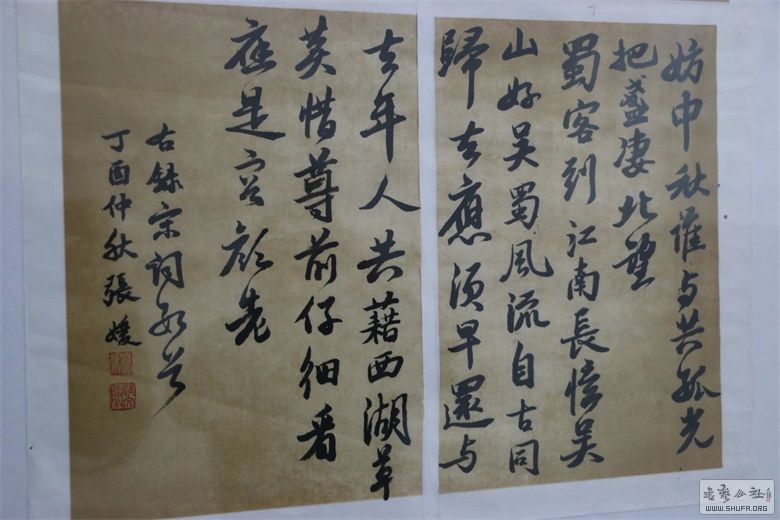 妨中秋誰与共孤光
把盞凄北望
蜀客到江南長憶吴
山好吴蜀風流自古同
歸去應須早還与
去年人共藉西湖草
莫惜尊前仔細看
應是容顔老
右録宋詞数首
丁酉仲秋張媛
WWW.SHUFA.ORG